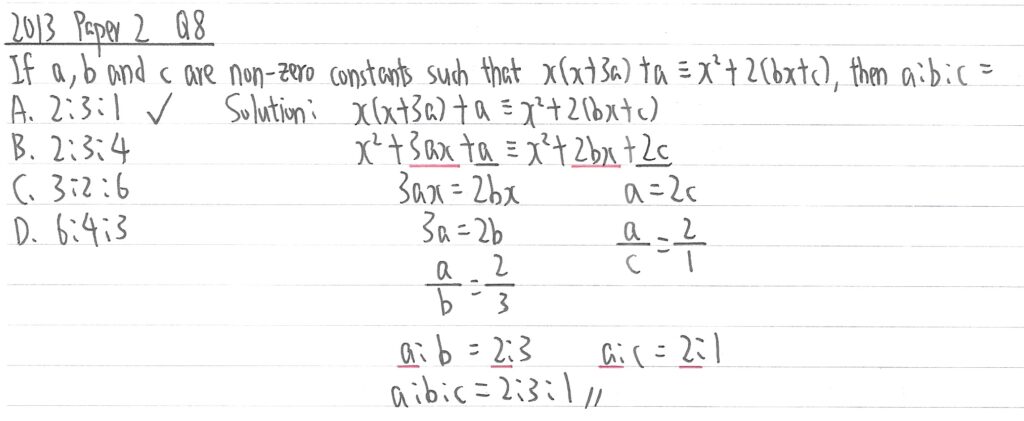 2013 Paper 2 Q8
If a, b and c are non-zero constants such that x(x+3a)+a ≡ x²+2(bx+c), then a:b:c =
A. 2:3:1 ✓ Solution: x(x+3a)+a ≡ x²+2(bx+c)
B. 2:3:4 x²+3ax+a ≡ x²+2bx+2c
C. 3:2:6 3ax=2bx a=2c
D. 6:4:3 3a=2b a/c=2/1
a/b=2/3
a:b = 2:3 a:c = 2:1
a:b:c = 2:3:1 //